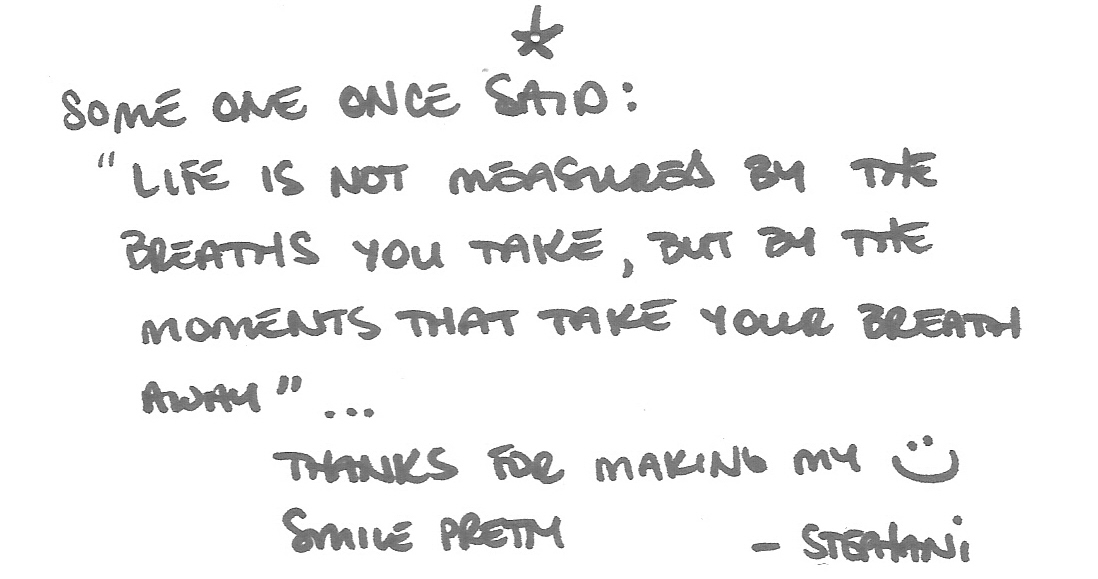 SOME ONE ONCE SAID:
"LIFE IS NOT MEASURED BY THE
BREATHS YOU TAKE, BUT BY THE
MOMENTS THAT TAKE YOUR BREATH
AWAY"...
THANKS FOR MAKING MY
SMILE PRETTY - STEPHANi